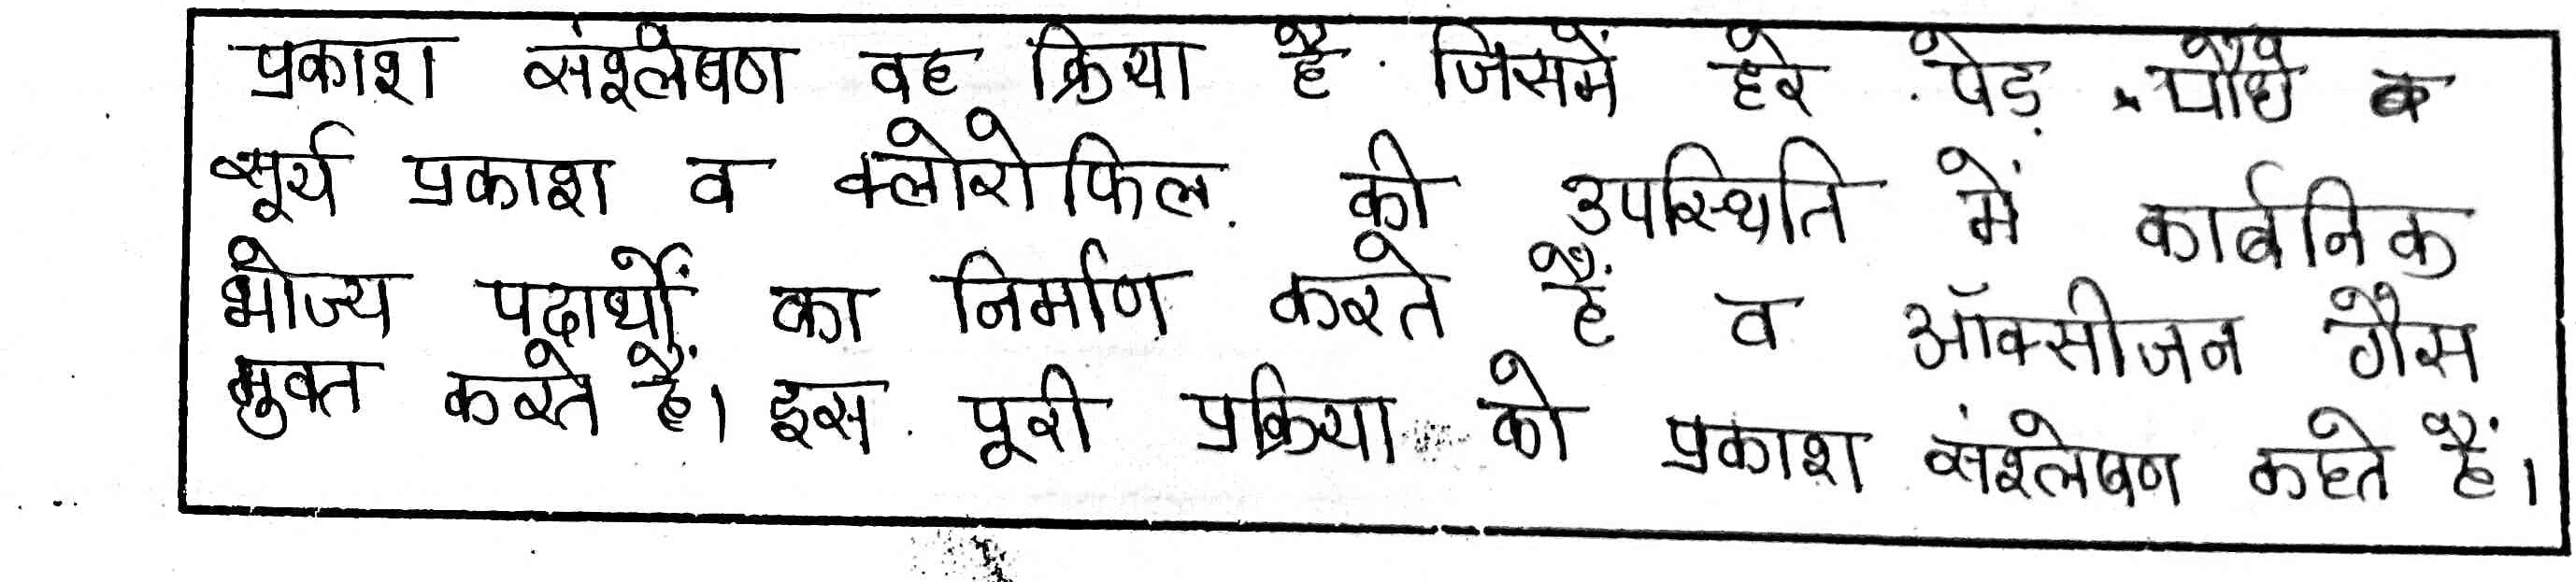 प्रकाश संश्लेषण वह क्रिया है जिसमें हरे पेड़ पौधे व
सूर्य प्रकाश व क्लोरोफिल की उपस्थिति में कार्बनिक
भोज्य पदार्थों का निर्माण करते हैं व ऑक्सीजन गैस
मुक्त करते हैं। इस पूरी प्रक्रिया को प्रकाश संश्लेषण कहते हैं।